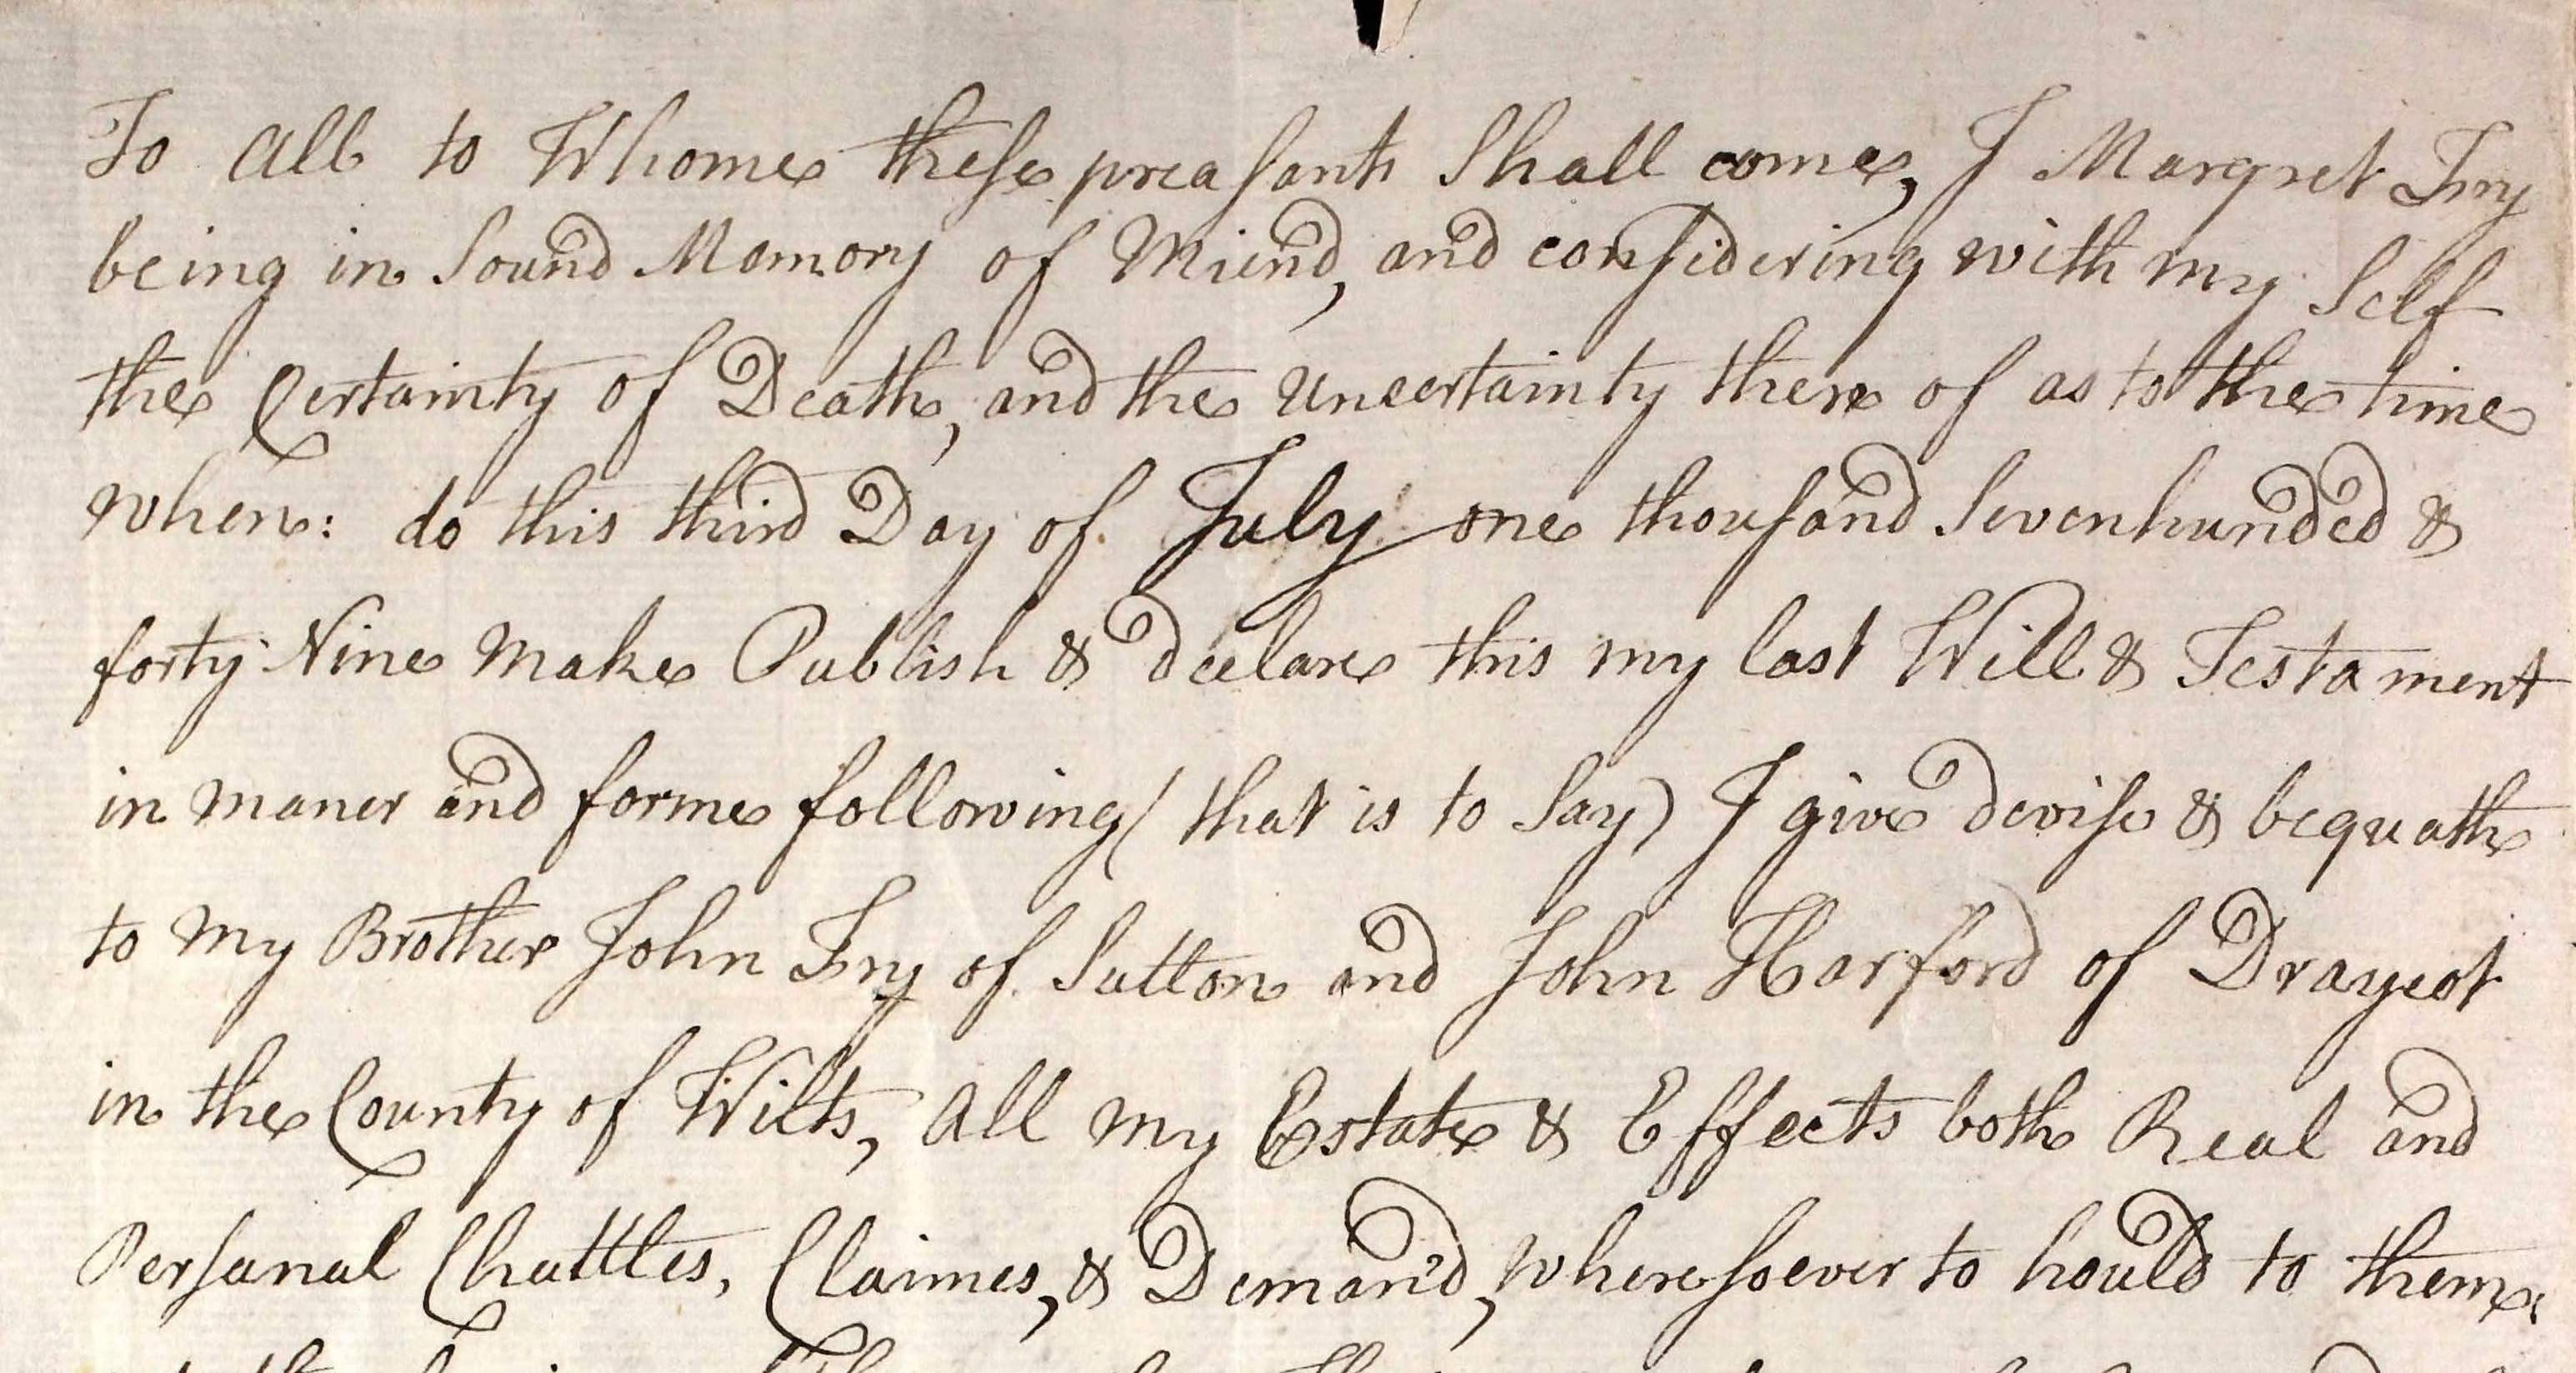 To All to Whome these preasants Shall come, I Margret Fry
being in Sound Memory of Miend, and considering with my Self
the Certainty of Death, and the Uncertainty there of as to the time
when: do this third Day of July one thousand Sevenhunded &
forty Nine Make Publish & declare this my last Will & Testament
in maner and forme following (that is to Say) I give devise & bequath
to My Brother John Fry of Sutton and John Harford of Draycot
in the County of Wilts, All my Estate & Effects both Real and
Persanal Chattles, Claimes, & Demand, wheresoever to hould to them